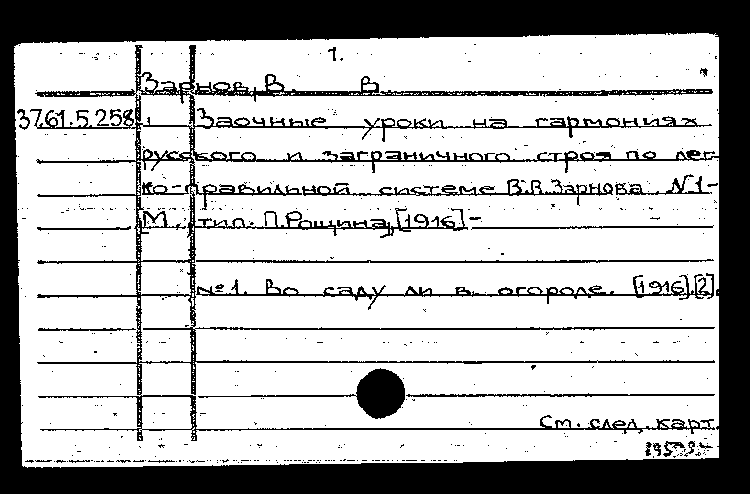 1.
Зарнов, В. В.
37.61.5.258 Заочные уроки на гармониях
русского и заграничного строя по лег-
ко-правильной системе В.В.Зарнова. №1-
М., тип. П.Рощина, [1916]-
№1. Во саду ли в огороде. [1916].[2].
См. след. карт.